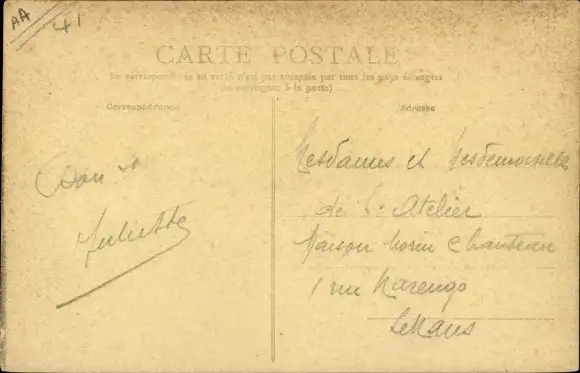 AA
41
CARTE POSTALE
La correspondance au verso n'est pas acceptée par tous les pays étrangers
(se renseigner à la poste)
Correspondance
Adresse
Juliette
Mesdames et Mesdemoiselles
de l' Atelier
Maison Morin Chanteau
1 rue Marengo
Le Mans